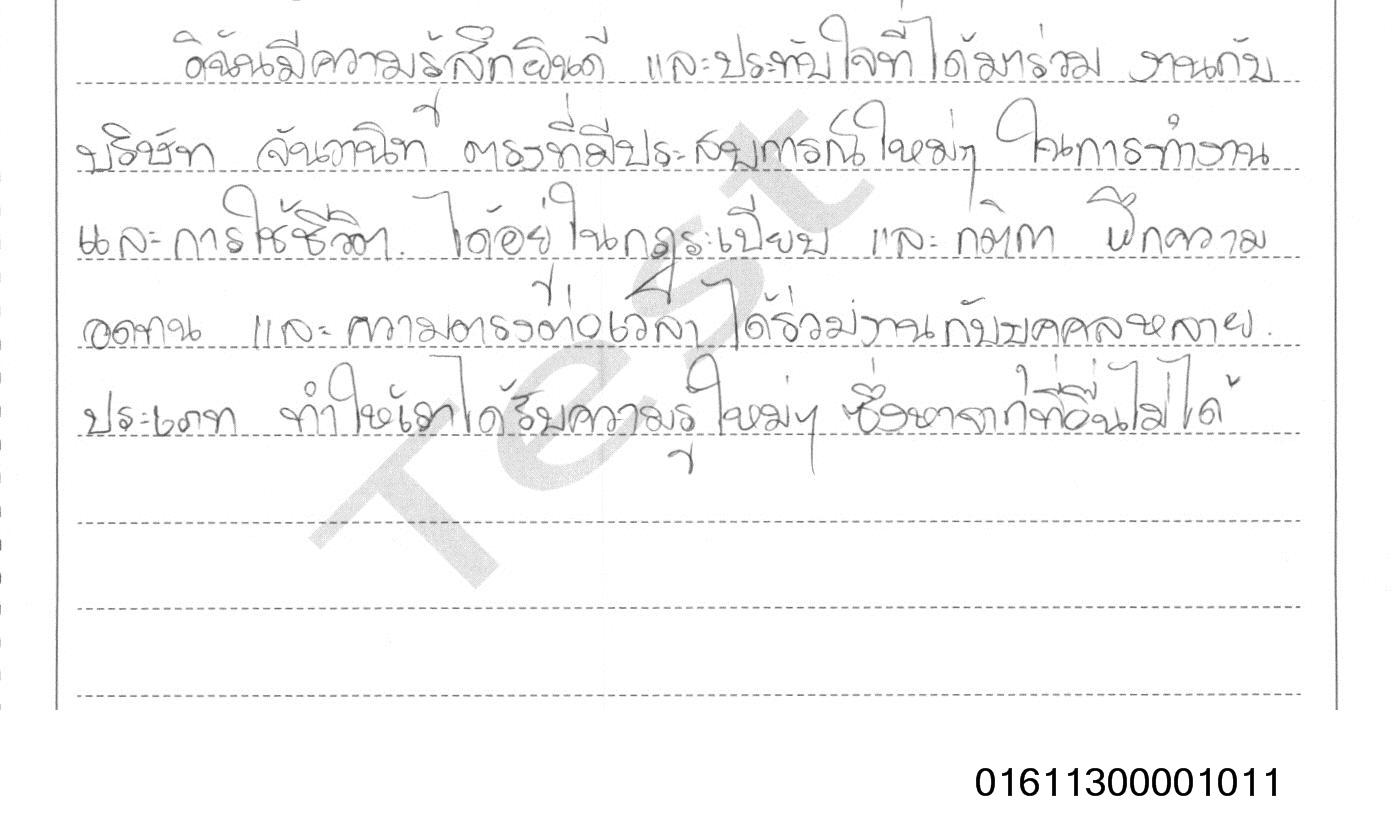 ดิฉันมีความรู้สึกยินดี และประทับใจที่ได้มาร่วม งานกับ
บริษัท จันวานิทย์ ตรงที่มีประสบการณ์ใหม่ๆ ในการทำงาน
และการใช้ชีวิต. ได้อยู่ในกฎระเบียบ และ กติกา ฝึกความ
อดทน และ ความตรงต่อเวลา ได้ร่วมงานกับบุคคลหลาย.
ประเภท ทำให้เราได้รับความรู้ใหม่ๆ ซึ่งหาจากที่อื่นไม่ได้
Test
01611300001011